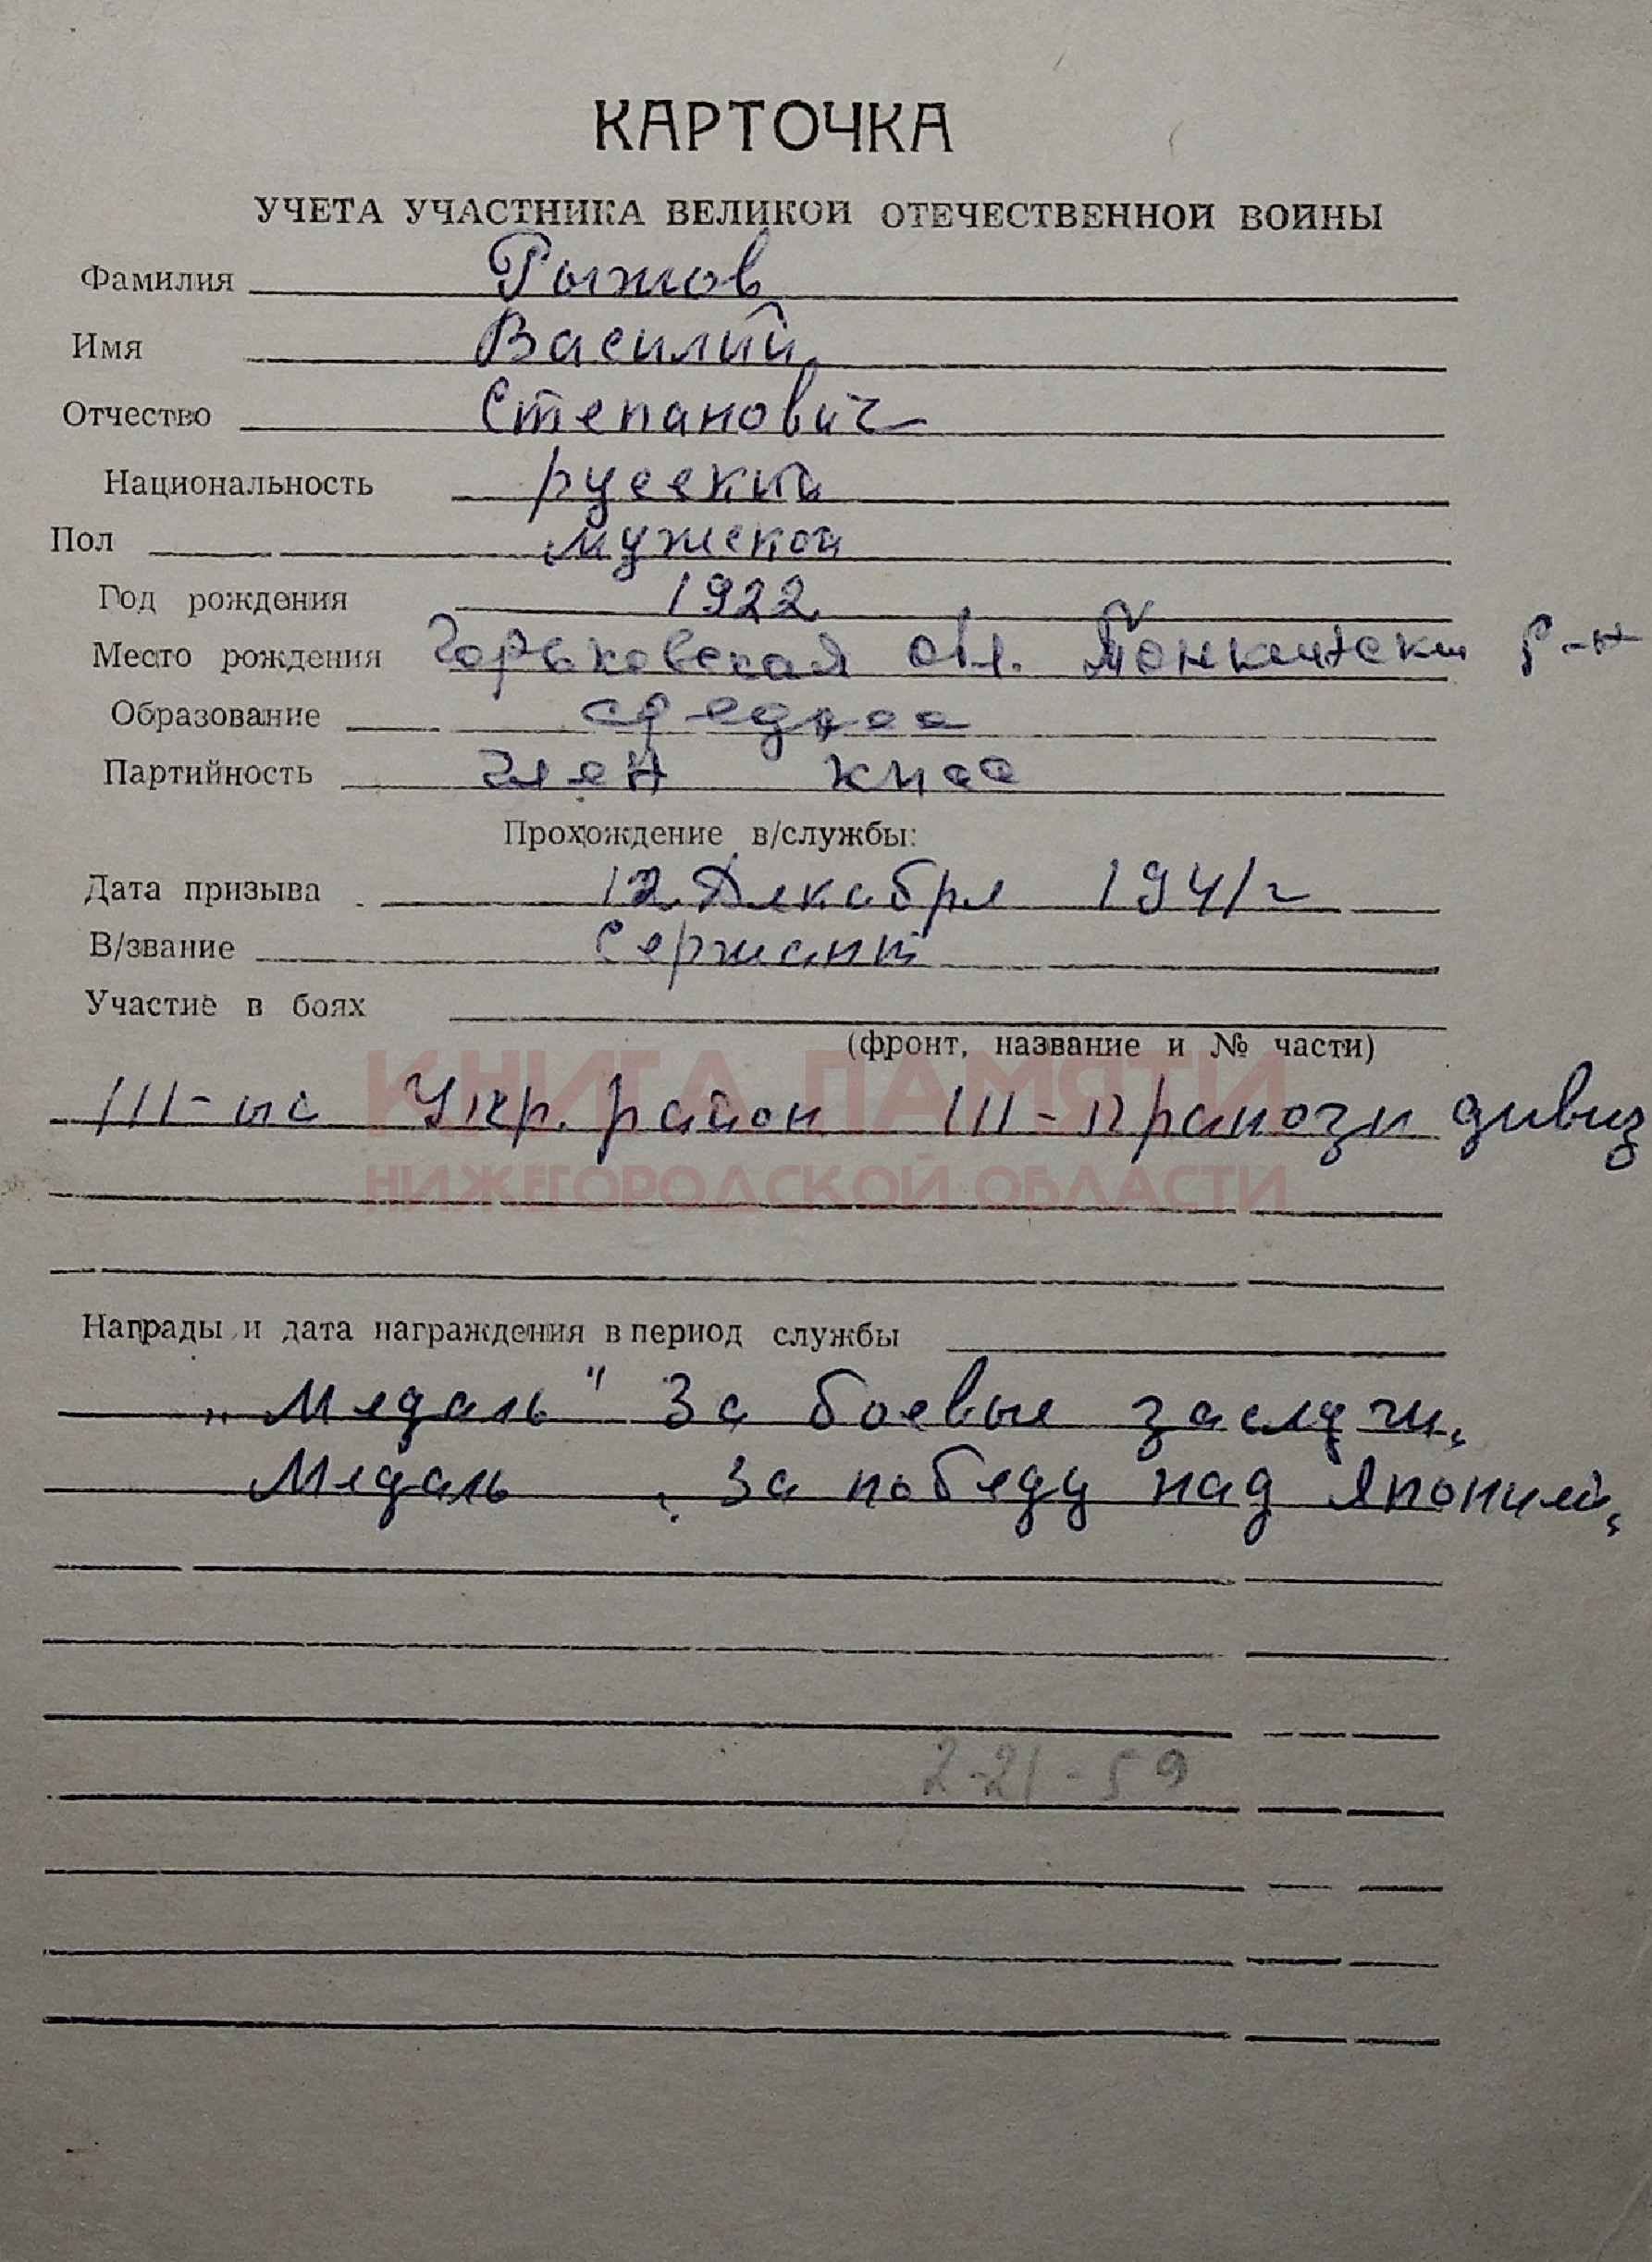 КАРТОЧКА
УЧЕТА УЧАСТНИКА ВЕЛИКОЙ ОТЕЧЕСТВЕННОЙ ВОЙНЫ
Фамилия Рыжов
Имя Василий
Отчество Степанович
Национальность русский
Пол мужской
Год рождения 1922
Место рождения Горьковская обл. Р-н
Образование среднее
Партийность член КПСС
Прохождение в/службы:
Дата призыва 12 Декабря 1941 г
В/звание Сержант
Участие в боях
(фронт, название и № части)
КНИГА ПАМЯТИ
III- Укр. район III- дивиз
НИЖЕГОРОДСКОЙ ОБЛАСТИ
Награды и дата награждения в период службы
„Медаль" За боевые заслуги,
Медаль , За победу над Японией,
2-21-59